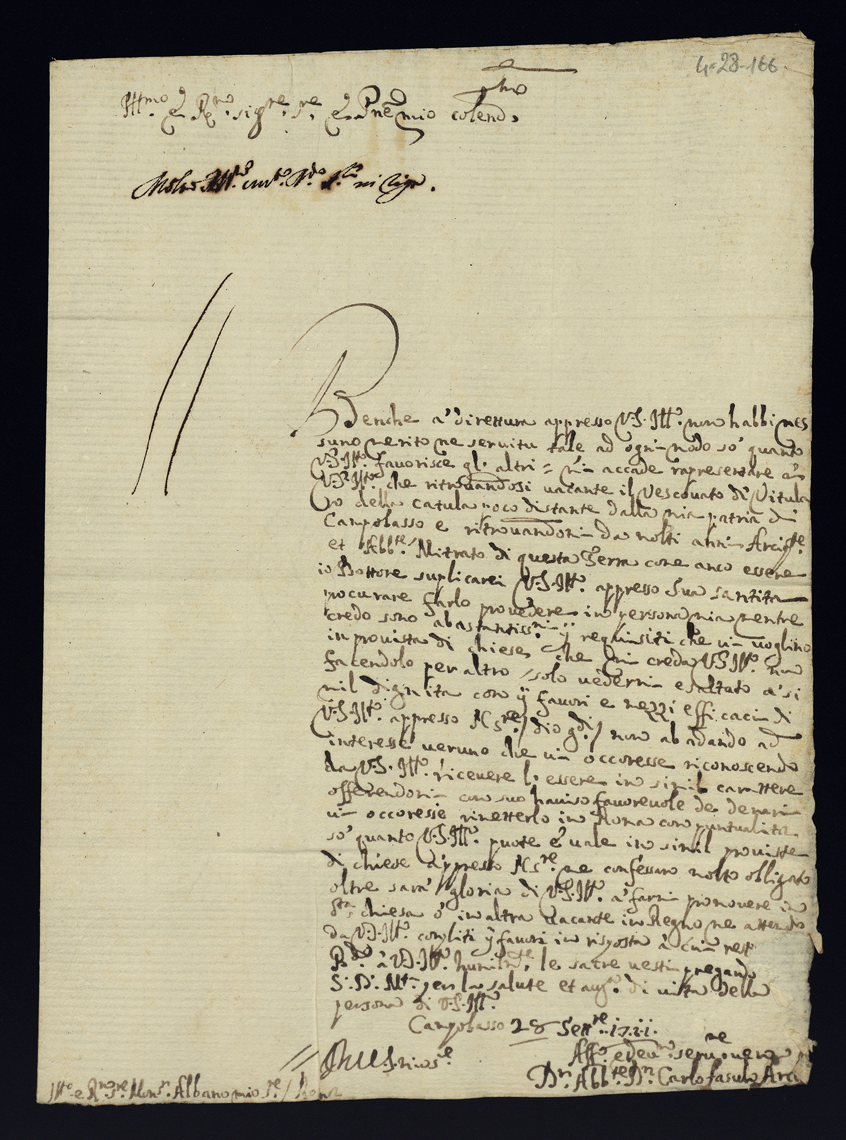 4-28-166.
Ill.mo e R.mo sig.re s.re e P.ne mio colend.mo
Benche a' direttura appresso V.S. Ill.a non habbi nes
suno merito ne seruitu tale ad ogni modo so' quanto
V.S. Ill.a fauorisce gl' altri = mi accade rapresentare à
V.S. Ill.a che ritrouandosi uacante il Vescouato di Vitula
ro della Catula poco distante dalla mia patria di
Campobasso e ritrouandomi da molti anni Arcip.te
et Abb.te Mitrato di questa Terra come anco essere
io Dottore suplicarei V.S. Ill.a appresso Sua santita
procurare farlo prouedere in persona mia mentre
credo sono abastantiss.mi y requisiti che ui uoglino
in prouista di chiese, che mi creda V.S. Ill.a non
facendolo per altro solo uedermi esaltato a' si
mil dignita con y fauori e mezzi efficaci di
V.S. Ill.a appresso N.S.re / dio g.di / non abadando ad
interesse ueruno che ui occoresse riconoscendo
da V.S. Ill.a riceuere l' essere in simil carattere
offerendomi con suo hauiso fauoreuole de denari
ui occoresse rimetterlo in Roma con puntualita
so' quanto V.S. Ill.a puote e' uale in simil prouiste
di chiese appresso N.S.re ne confessaro molto obligato
oltre sara' gloria di V.S. Ill.a a' farmi promouere in
q.sta chiesa o' in altra uacante in Regno ne attendo
da V.S. Ill.a compliti y fauori in risposta à cui rest
à V.S. Ill.a humilm.te le sacre uesti pregando
S.D.M. per la salute et aug.o di uista della
persona di V.S. Ill.a
Campobasso 28 Sett.re 1711.
Aff.mo e deu.mo seru.re uero
D.r Abb.te D.n Carlo fasulo Arci
Ill.o e R.mo s.re Mons.r Albano mio s.re / Roma